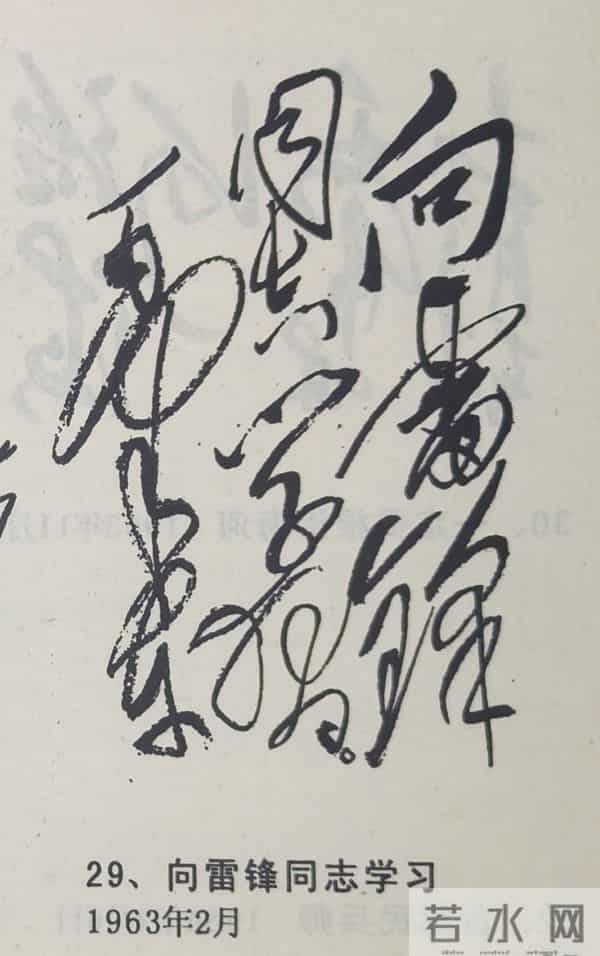 向雷锋
同志学习。
毛泽东
29、向雷锋同志学习
1963年2月
若水网